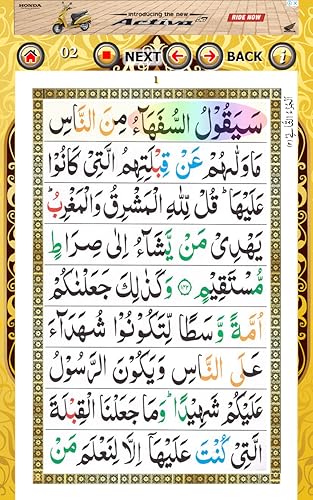 HONDA
introducing the new
Activa 5G
RIDE NOW
02 NEXT BACK i
1
سَيَقُوۡلُ السُّفَهَآءُ مِنَ النَّاسِ
مَا وَلّٰٮهُمۡ عَنۡ قِبۡلَتِهِمُ الَّتِىۡ كَانُوۡا
عَلَيۡهَا ؕ قُلۡ لِّلّٰهِ الۡمَشۡرِقُ وَالۡمَغۡرِبُ ؕ
يَهۡدِىۡ مَنۡ يَّشَآءُ اِلٰى صِرَاطٍ
مُّسۡتَقِيۡمٍ ﴿۱۴۲﴾ وَكَذٰلِكَ جَعَلۡنٰكُمۡ
اُمَّةً وَّسَطًا لِّتَکُوۡنُوۡا شُهَدَآءَ
عَلَى النَّاسِ وَيَكُوۡنَ الرَّسُوۡلُ
عَلَيۡكُمۡ شَهِيۡدًا ؕ وَمَا جَعَلۡنَا الۡقِبۡلَةَ
الَّتِىۡ كُنۡتَ عَلَيۡهَآ اِلَّا لِنَعۡلَمَ مَنۡ